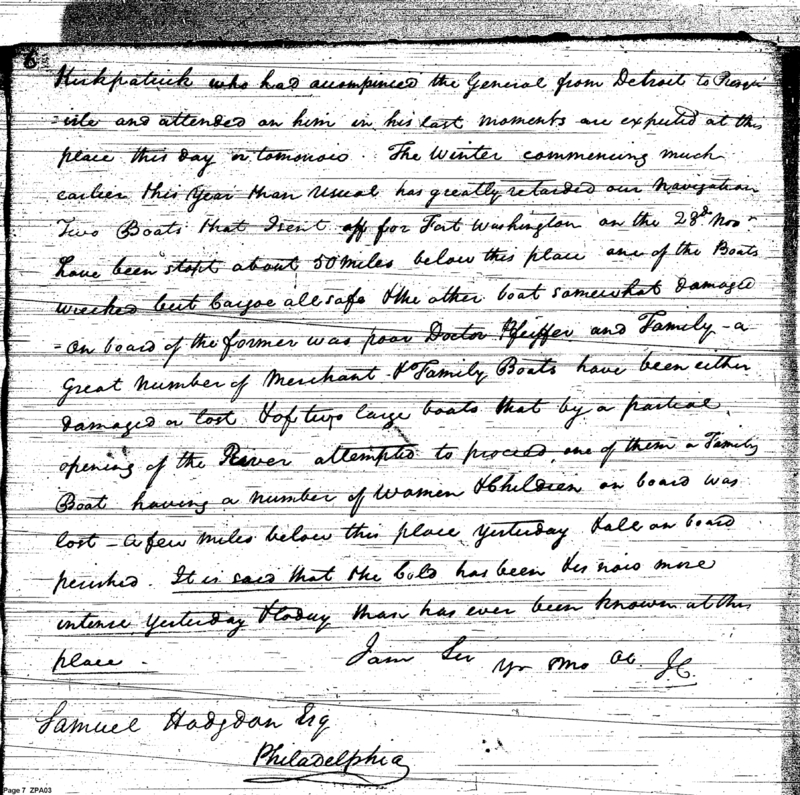 6
Kirkpatrick who had accompinied the General from Detroit to Presqu
=isle and attended on him in his last moments are expected at this
place this day or tomorrow. The Winter commencing much
earlier this Year than usual has greatly retarded our Navigation
Two Boats that I sent off for Fort Washington on the 28th Novr
have been stopt about 50 Miles below this place one of the Boats
wrecked but Cargoe all safe & the other boat somewhat damaged
=on board of the former was poor Doctor Pfeiffer and Family - a
Great number of Merchant & Family Boats have been either
damaged or lost & of two large boats that by a partial
opening of the River attempted to proceed, one of them a Family
Boat having a number of Women & Children on board was
lost - a few Miles below this place yesterday & all on board
perished. It is said that the Cold has been & is now more
intense yesterday & today than has ever been known at this
place -
I am Sir Yr Mo Ob JC.
Samuel Hodgdon Esq
Philadelphia
Page 7 ZPA03